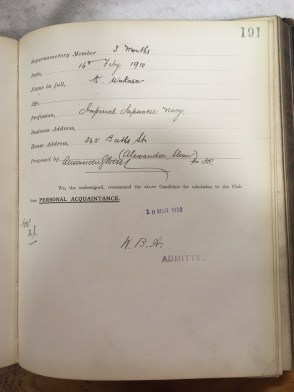 191
Supernumerary Member 3 Months
Date, 16th Feby 1910
Name in full, K.
Age,
Profession, Imperial Japanese Navy.
Business Address,
Home Address, 240 Bath St.
(Alexander Sloan)
Proposed by,
We, the undersigned, recommend the above Candidate for admission to the Club
from PERSONAL ACQUAINTANCE.
10 MAR 1910
ADMITTED